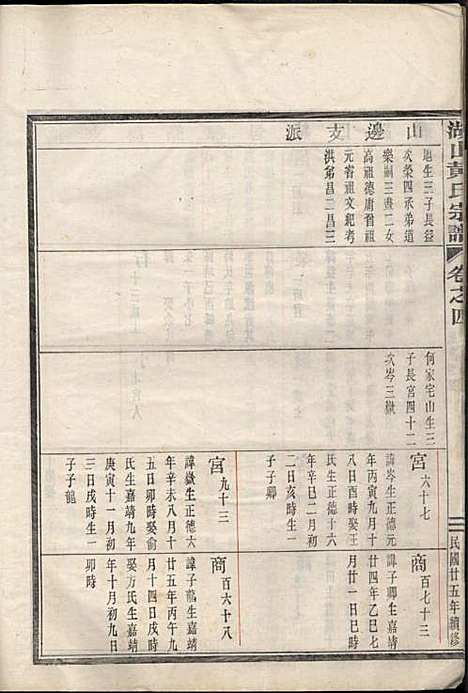 湖山黃氏宗譜
卷之四
民國廿五年續修
山邊支派
地生三子長益
次榮四承弟道
樂嗣三晝二女
高祖德庸曾祖
元睿祖文紀考
洪弟昌二昌三
何家宅山生三
子長宮四十二
次岑三嶽
宮六十七
諱岑生正德元
年丙寅九月十
八日酉時娶王
氏生正德十六
年辛巳二月初
二日亥時生一
子子卿
宮九十三
諱嶽生正德六
年辛未八月十
五日卯時娶俞
氏生嘉靖九年
庚寅十一月初
三日戌時生一
子子龍
商百七十三
諱子卿生嘉靖
廿四年乙巳七
月廿一日巳時
商百六十八
諱子龍生嘉靖
廿五年丙午九
月十四日戌時
娶方氏生嘉靖
年十月初九日
卯時